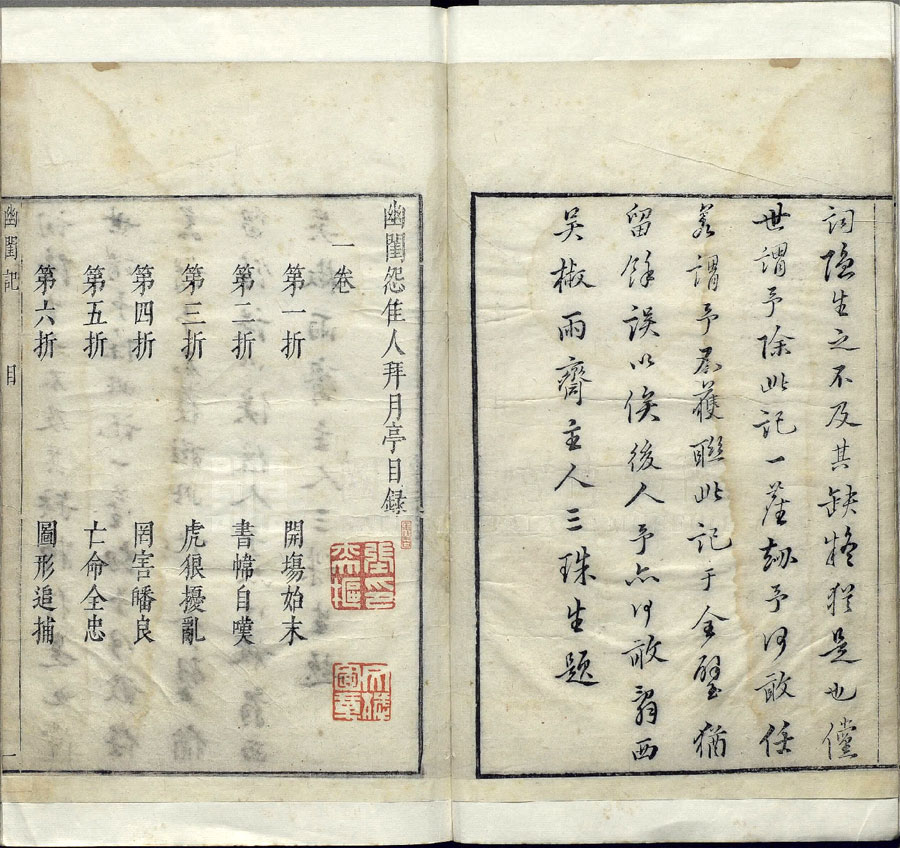 詞隐生之不及其缺疑犹是也儻
世謂予除此記一塵劫予何敢任
若謂予不獲聯此記于全璧猶
留餘誤以俟後人予亦何敢辭西
吴椒雨齋主人三珠生題
幽閨怨佳人拜月亭目録
一卷
第一折 開塲始末
第二折 書幃自嘆
第三折 虎狼擾亂
第四折 罔害皤良
第五折 亡命全忠
第六折 圖形追捕
幽閨記 目 一